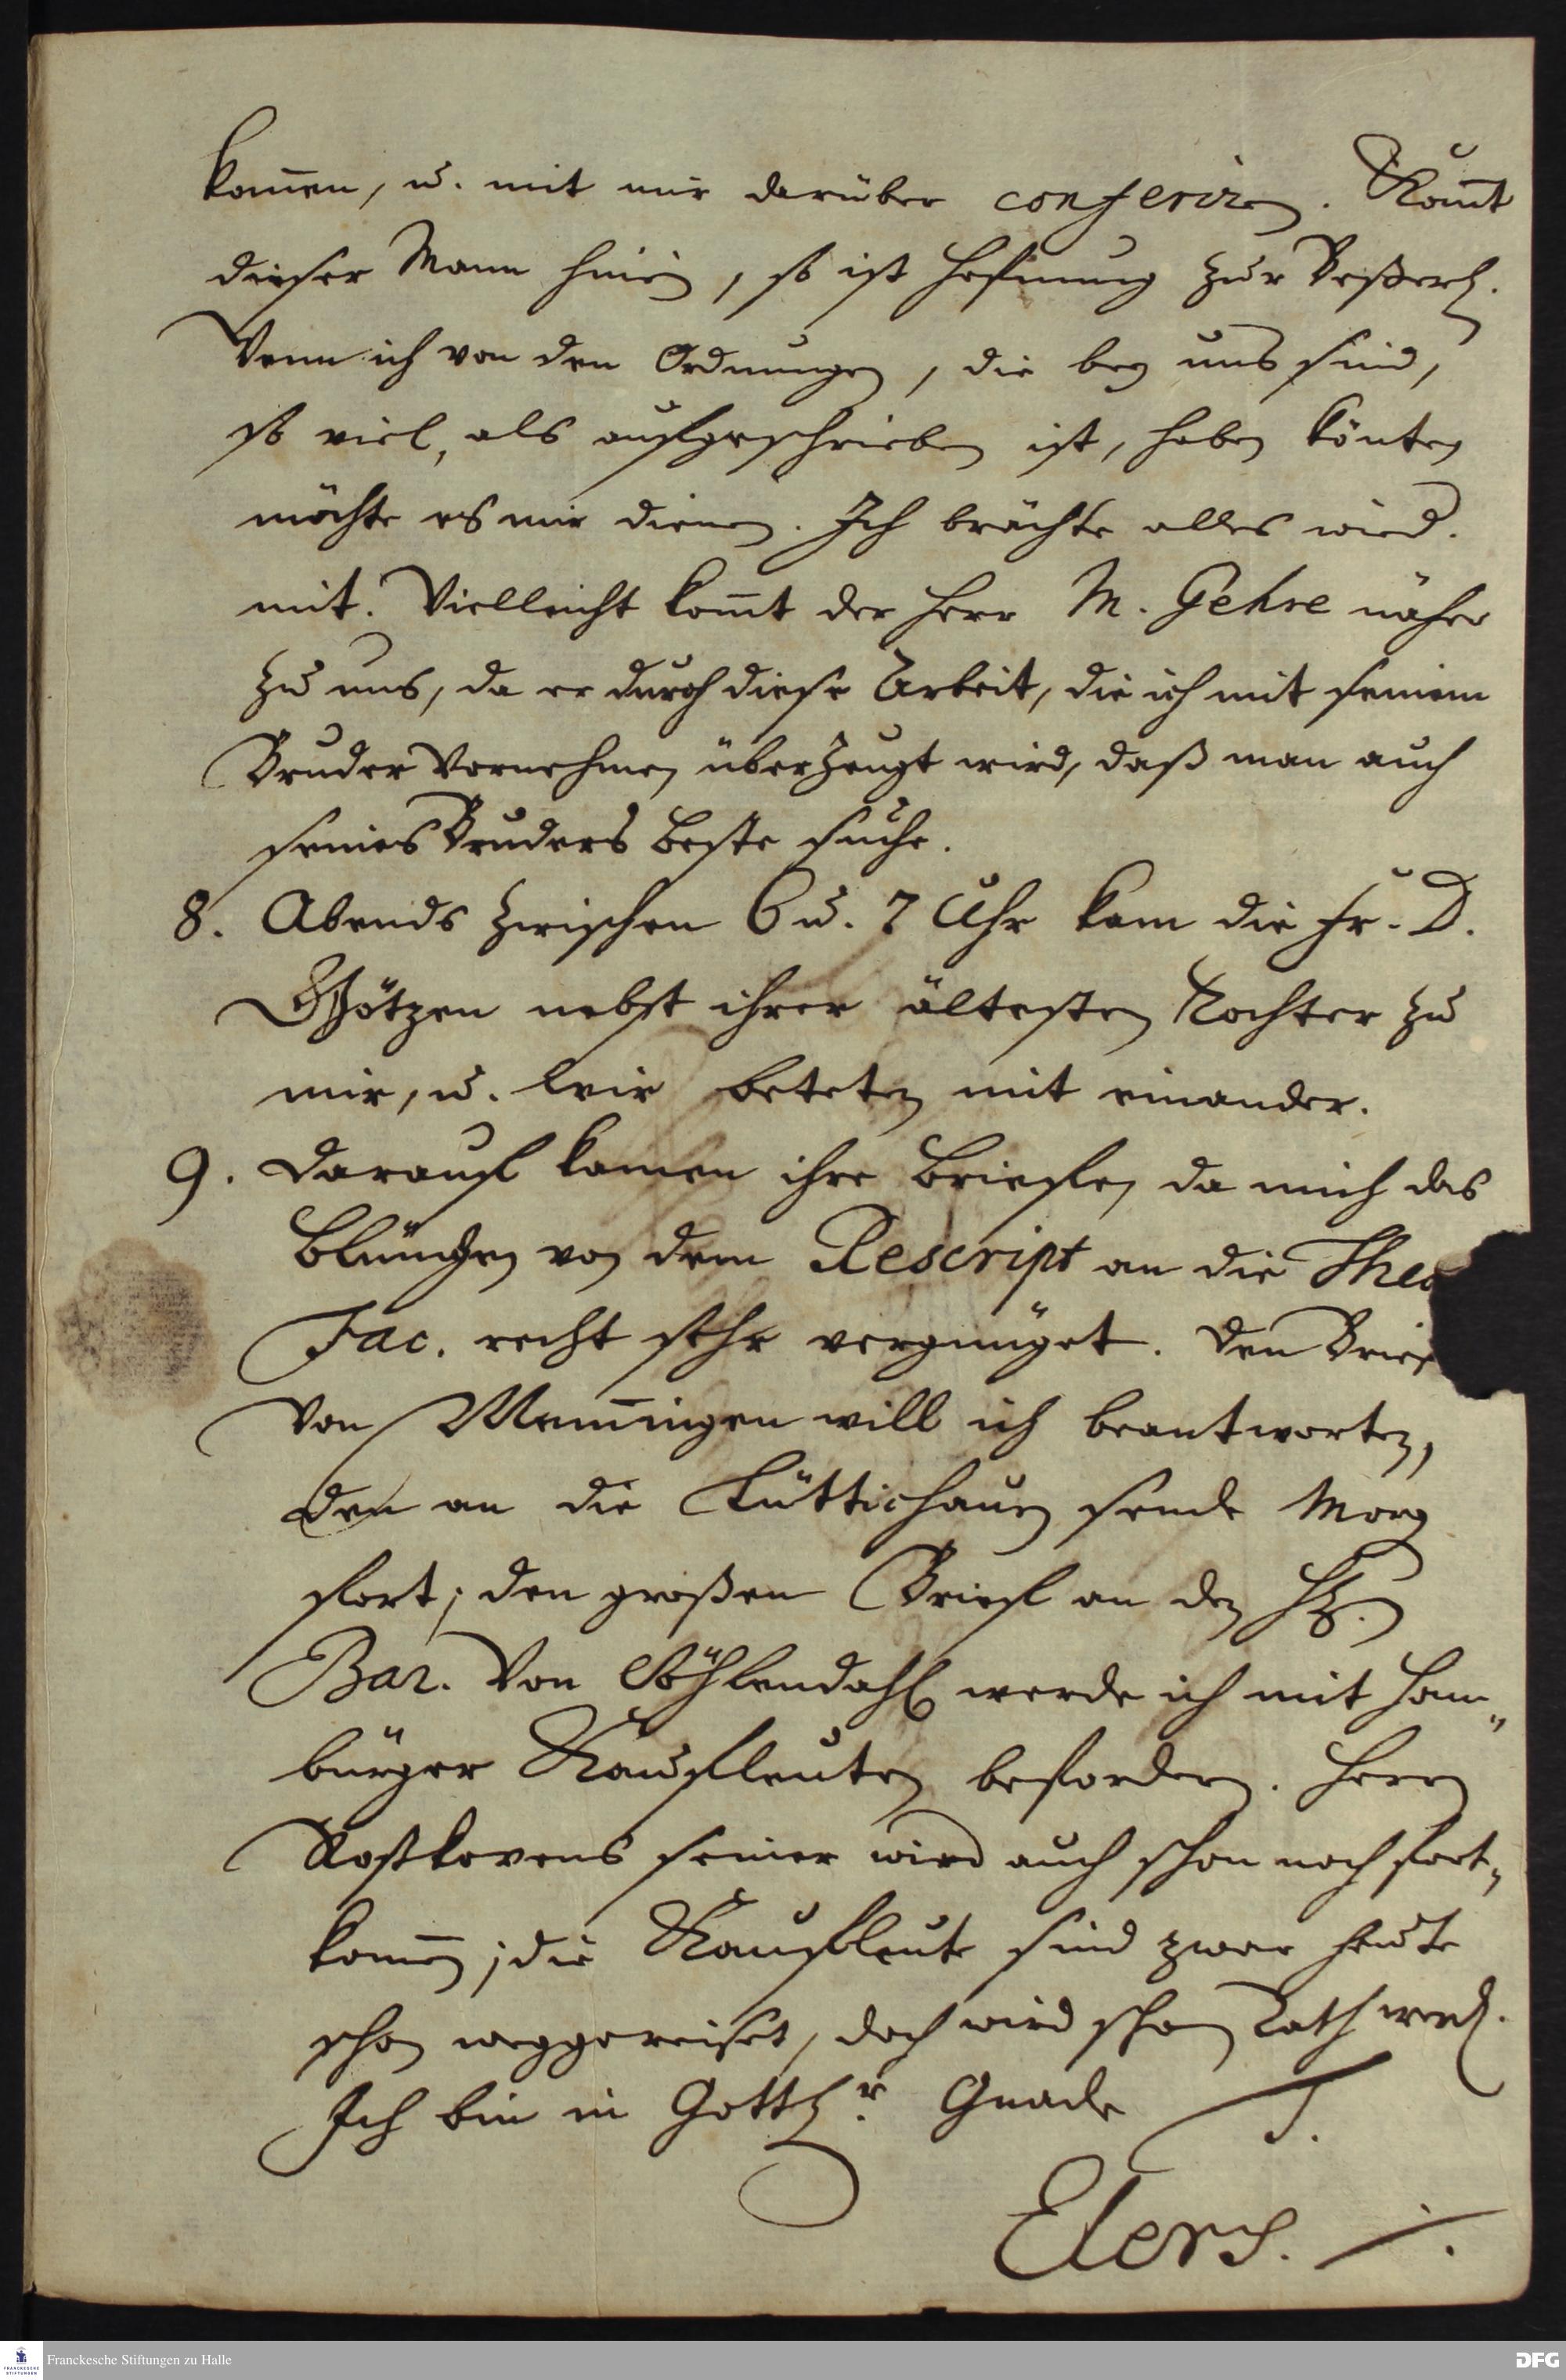 kom̄en, u. mit mir darüber conferiren. Kom̄t
dieser Mann hinein, so ist Hofnung zur Beßerung.
Wenn ich von den Ordnungen, die bey uns sind,
so viel, als aufgeschrieben ist, haben könten
möchte es mir dienen. Ich brächte alles wied.
mit. Vielleicht kom̄t der Herr M. Gehre näher
zu uns, da er durch diese Arbeit, die ich mit seinem
Bruder vornehmen überzeugt wird, daß man auch
seines Bruders Beste suche.
8. Abends zwischen 6 u. 7 Uhr kam die Fr. D.
Götzen nebst ihrer ältesten Tochter zu
mir, u. wir beteten mit einander.
9. Darauf kamen ihre Briefe, da mich das
von dem Rescript an die Theo
Fac. recht sehr vergnüget. Den Brief
von Mem̄ingen will ich beantworten,
den an die Lüttichauen sende Morg
fort; den großen Brief an den H.
Bar. von Söhlendahl werde ich mit Ham„
burger Kaufleuten befordern. Herrn
Rostkovens seiner wird auch schon noch fort„
kom̄en; die Kaufleute sind zwar heute
schon weggereiset, doch wird schon Rath werden.
Ich bin in Gottes Gnade
Elers.
Franckesche Stiftungen zu Halle
DFG